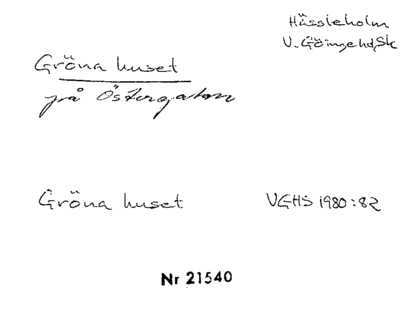 Hässleholm
V. Göingehd, Sk
Gröna huset
på Östergatan
Gröna huset
VGHS 1980:82
Nr 21540